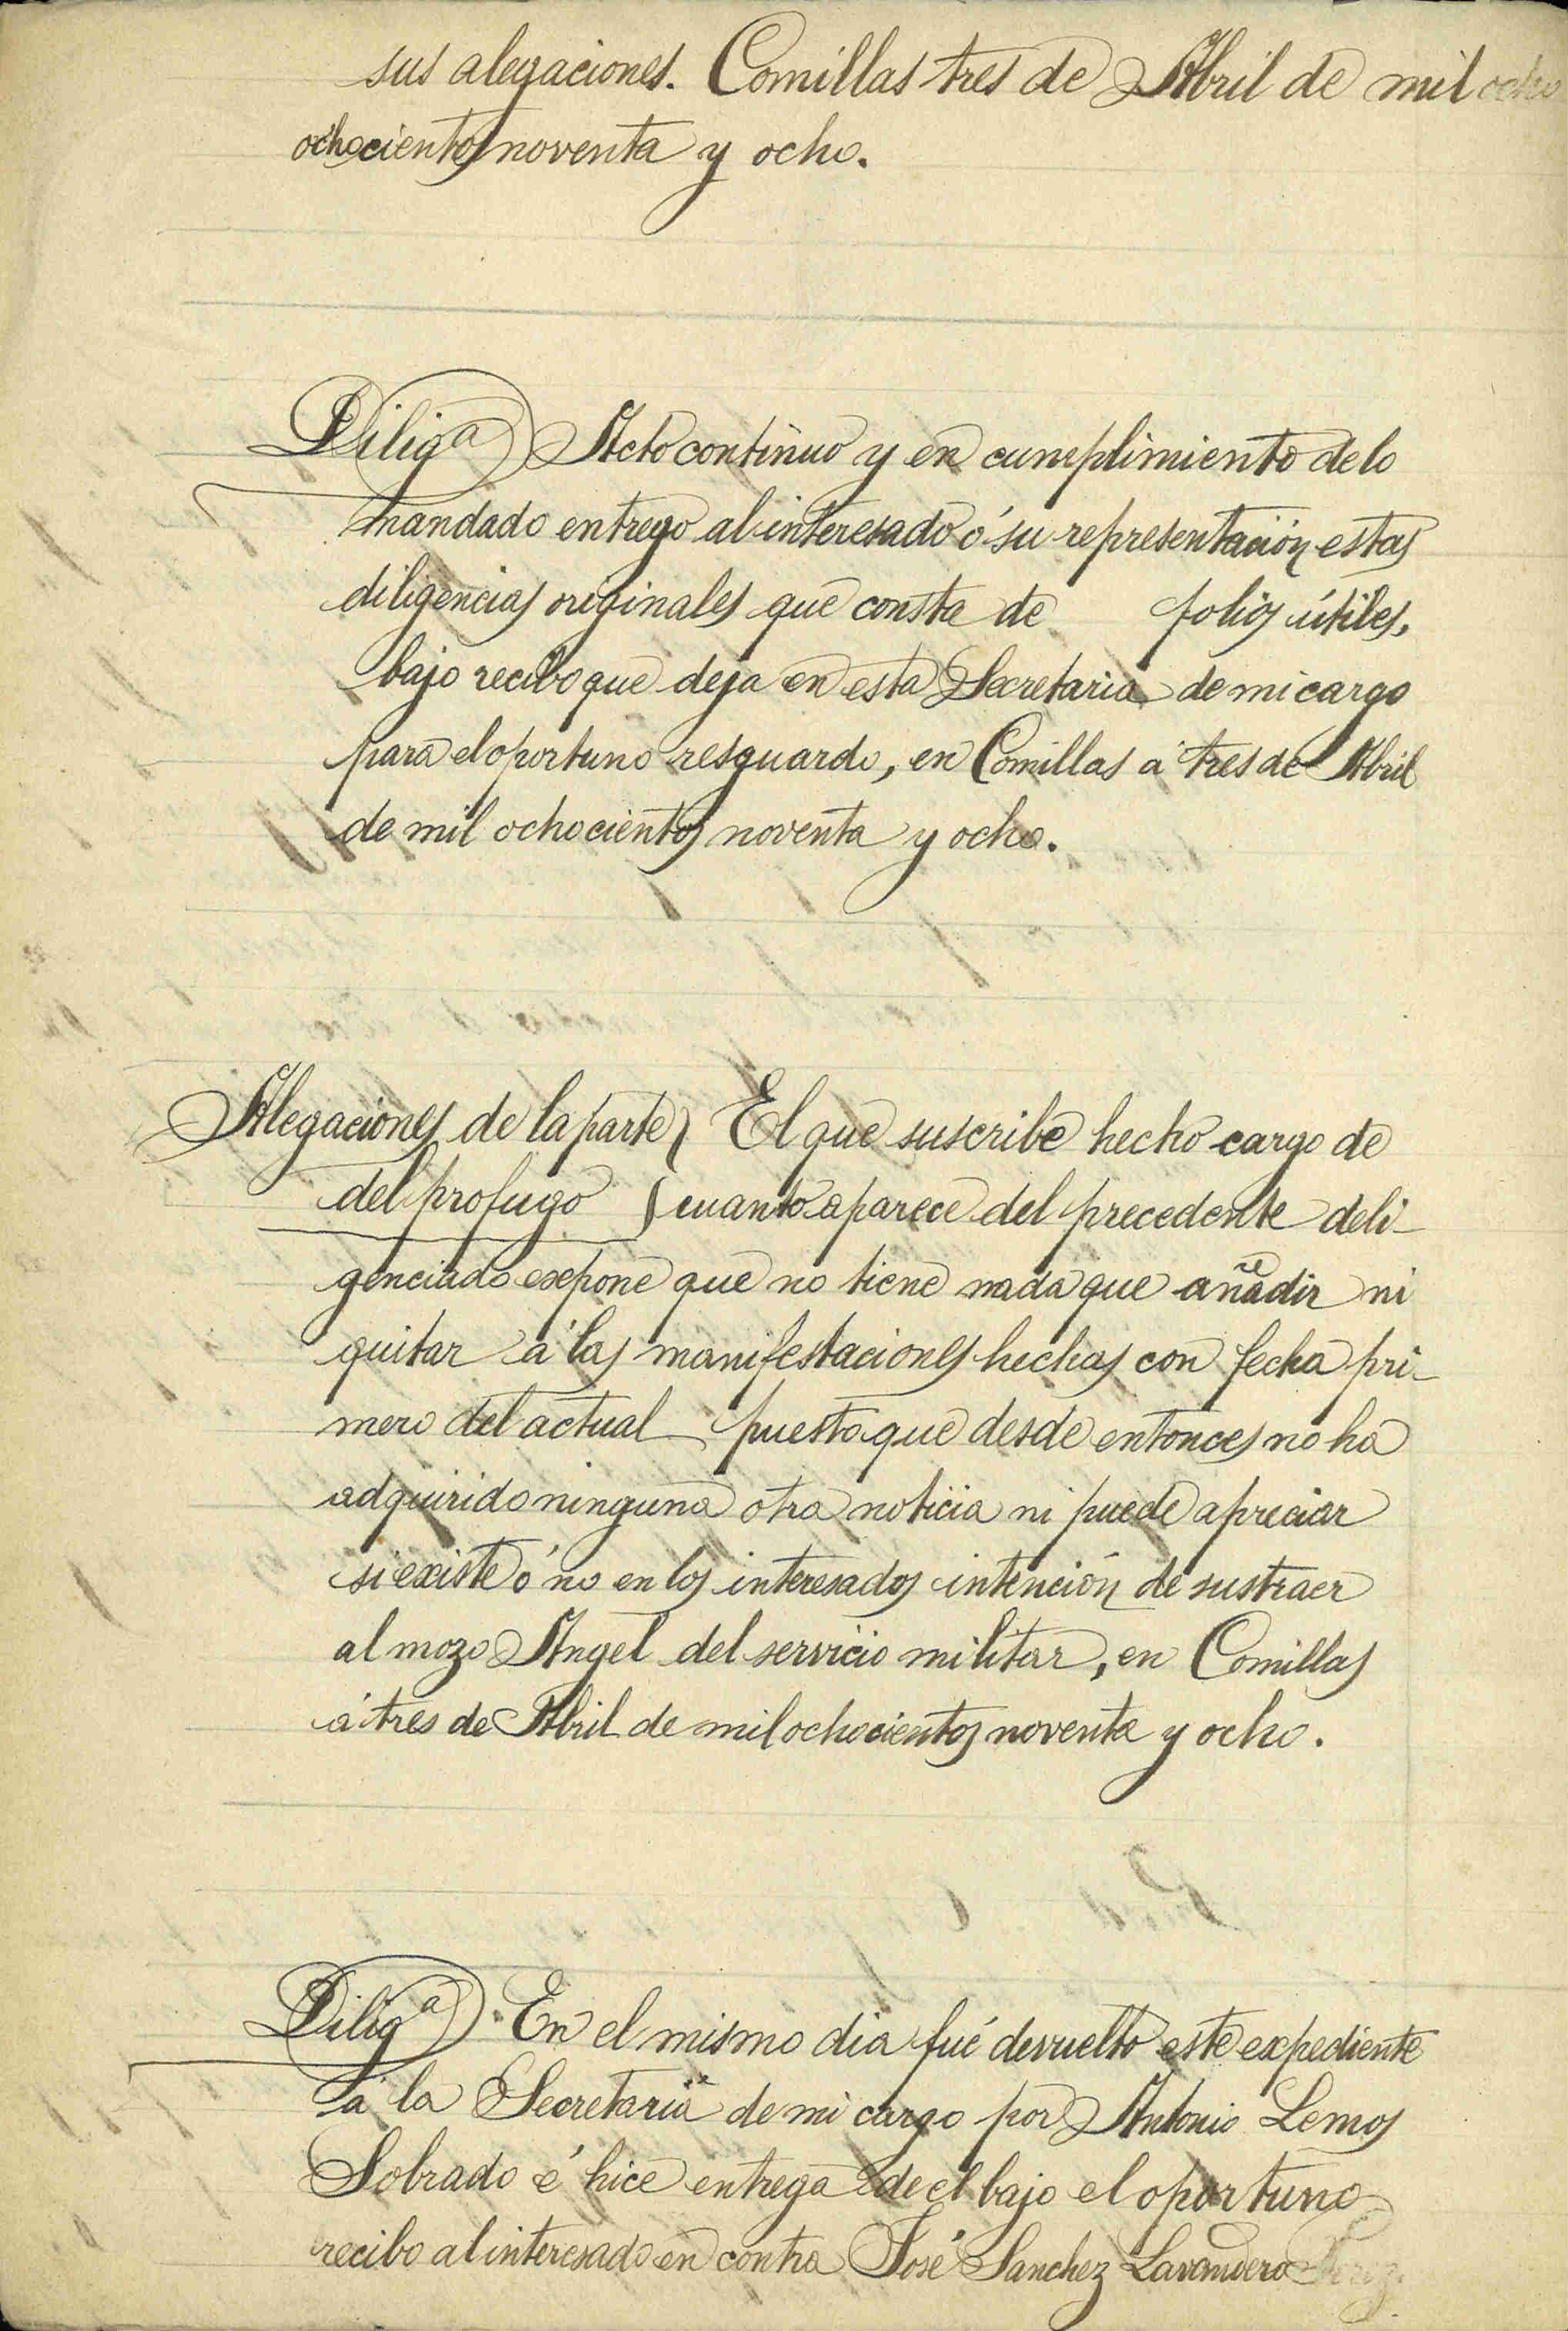 sus alegaciones. Comillas tres de Abril de mil ocho
ochocientos noventa y ocho.
Diligª) Acto contínuo y en cumplimiento de lo
mandado entrego al interesado ó su representación estas
diligencias originales que consta de folios útiles,
bajo recibo que deja en esta Secretaria de mi cargo
para el oportuno resguardo, en Comillas á tres de Abril
de mil ochocientos noventa y ocho.
Alegaciones de la parte } El que suscribe hecho cargo de
del profugo } cuanto aparece del precedente deli-
genciado expone que no tiene nada que añadir ni
quitar á las manifestaciones hechas con fecha pri-
mero del actual puesto que desde entonces no ha
adquirido ninguna otra noticia ni puede apreciar
si existe ó no en los interesados intención de sustraer
al mozo Angel del servicio militar, en Comillas
á tres de Abril de mil ochocientos noventa y ocho.
Diligª) En el mismo dia fué devuelto este expediente
á la Secretaria de mi cargo por Antonio Lemos
Sobrado é hice entrega de el bajo el oportuno
recibo al interesado en contra José Sanchez Lavandero